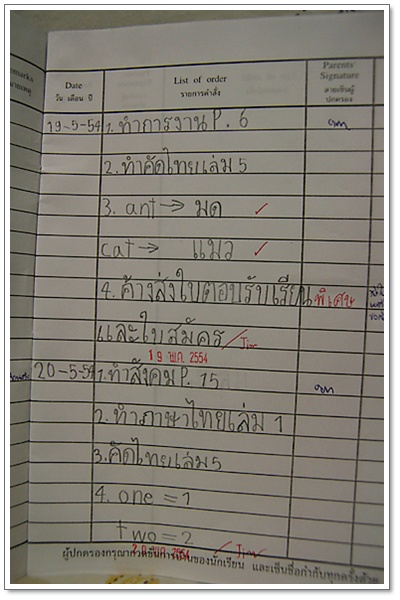 Parents
Date List of order Signature
วัน เดือน ปี รายการคำสั่ง ลายเซ็นผู้
ปกครอง
19-5-54 1. ทำการงาน P. 6
2. ทำคัดไทยเล่ม 5
3. ant → มด
cat → แมว
4. ค้างส่งใบตอบรับเรียนพิเศษ
และใบสมัคร
19 พ.ค. 2554
20-5-54 1. ทำสังคม P. 15
2. ทำภาษาไทยเล่ม 1
3. คัดไทยเล่ม 5
4. one = 1
two = 2
ผู้ปกครองกรุณาตรวจของนักเรียน และเซ็นชื่อกำกับทุกครั้งด้วย